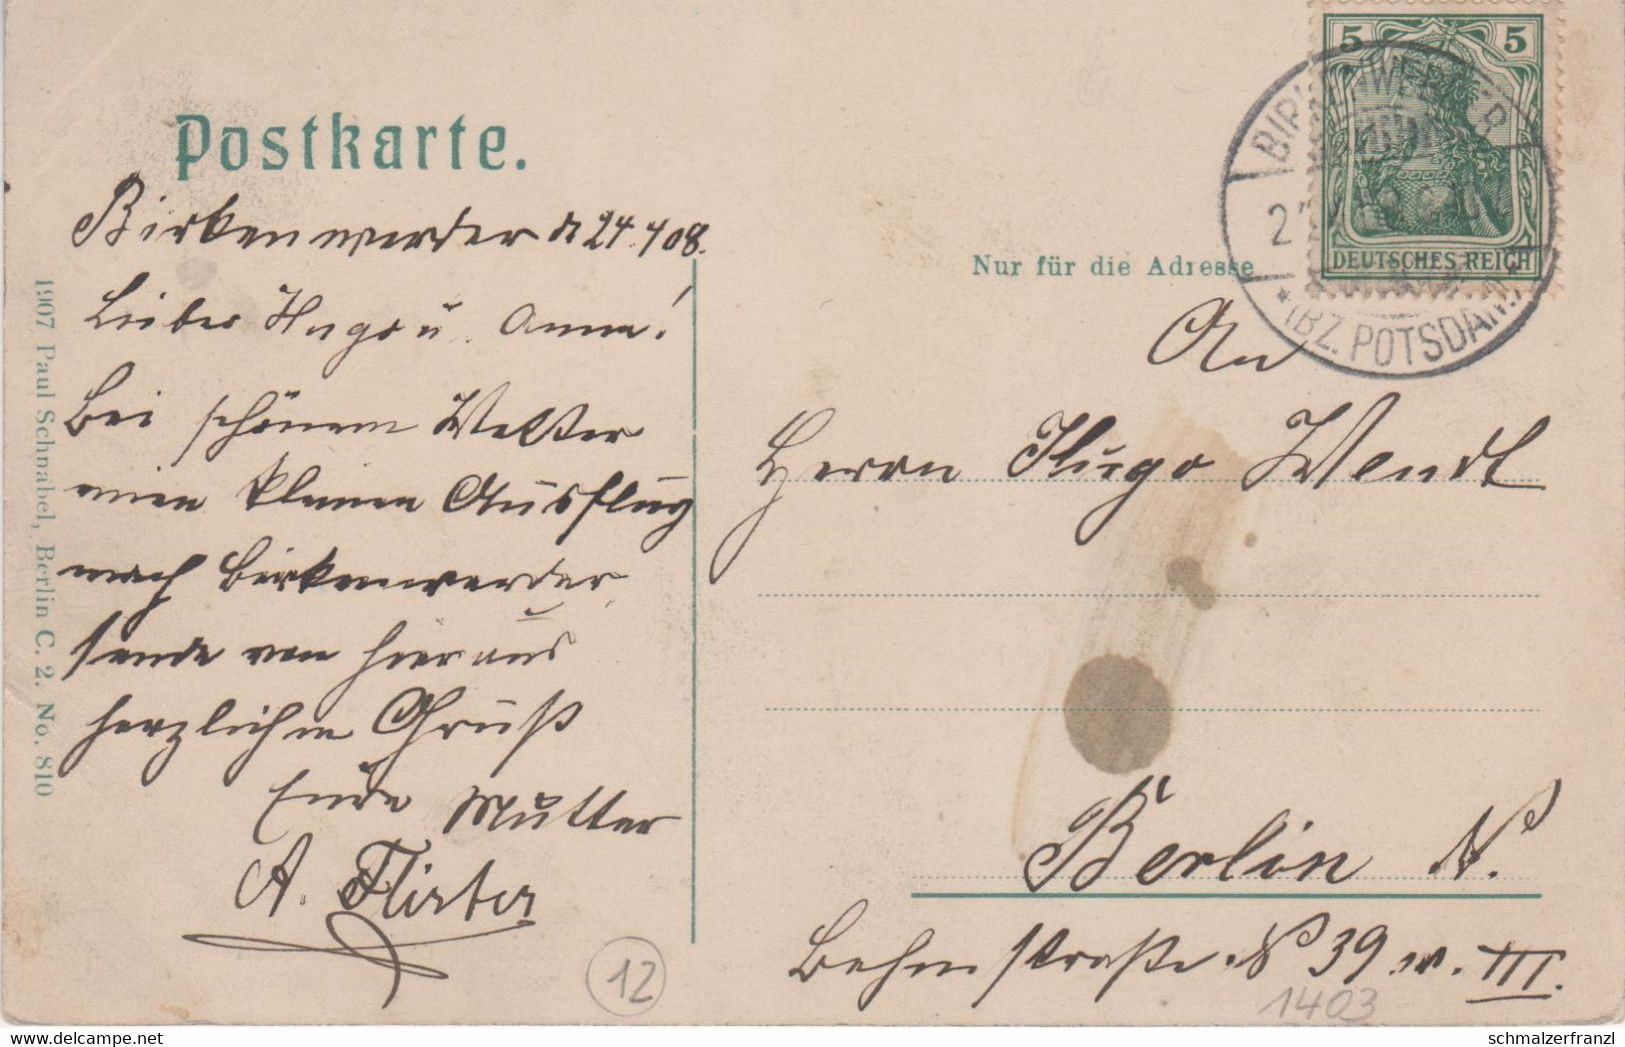 Postkarte.
Birkenwerder d 24.4 08.
Lieber Hugo u. Anna!
Bei schönem Wetter
einen kleinen Ausflug
nach Birkenwerder
sende von hier aus
herzlichen Gruß
Eure Mutter
A.
12
1907 Paul Schnabel, Berlin C. 2. No. 810
5 5
DEUTSCHES REICH
BIRKENWERDER
* (BZ. POTSDAM) *
Nur für die Adresse
An
Herrn Hugo Wendt
Berlin N.
39 III.
1403
www.delcampe.net
schmalzerfranzl